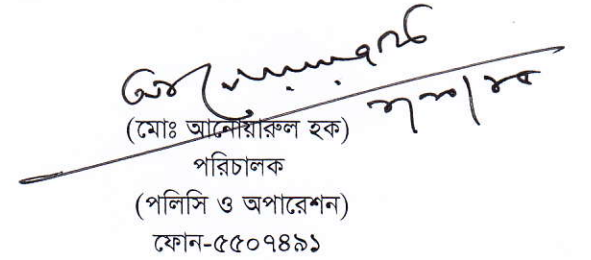 (মোঃ আনোয়ারুল হক)
পরিচালক
(পলিসি ও অপারেশন)
ফোন-৫৫০৭৪৯১